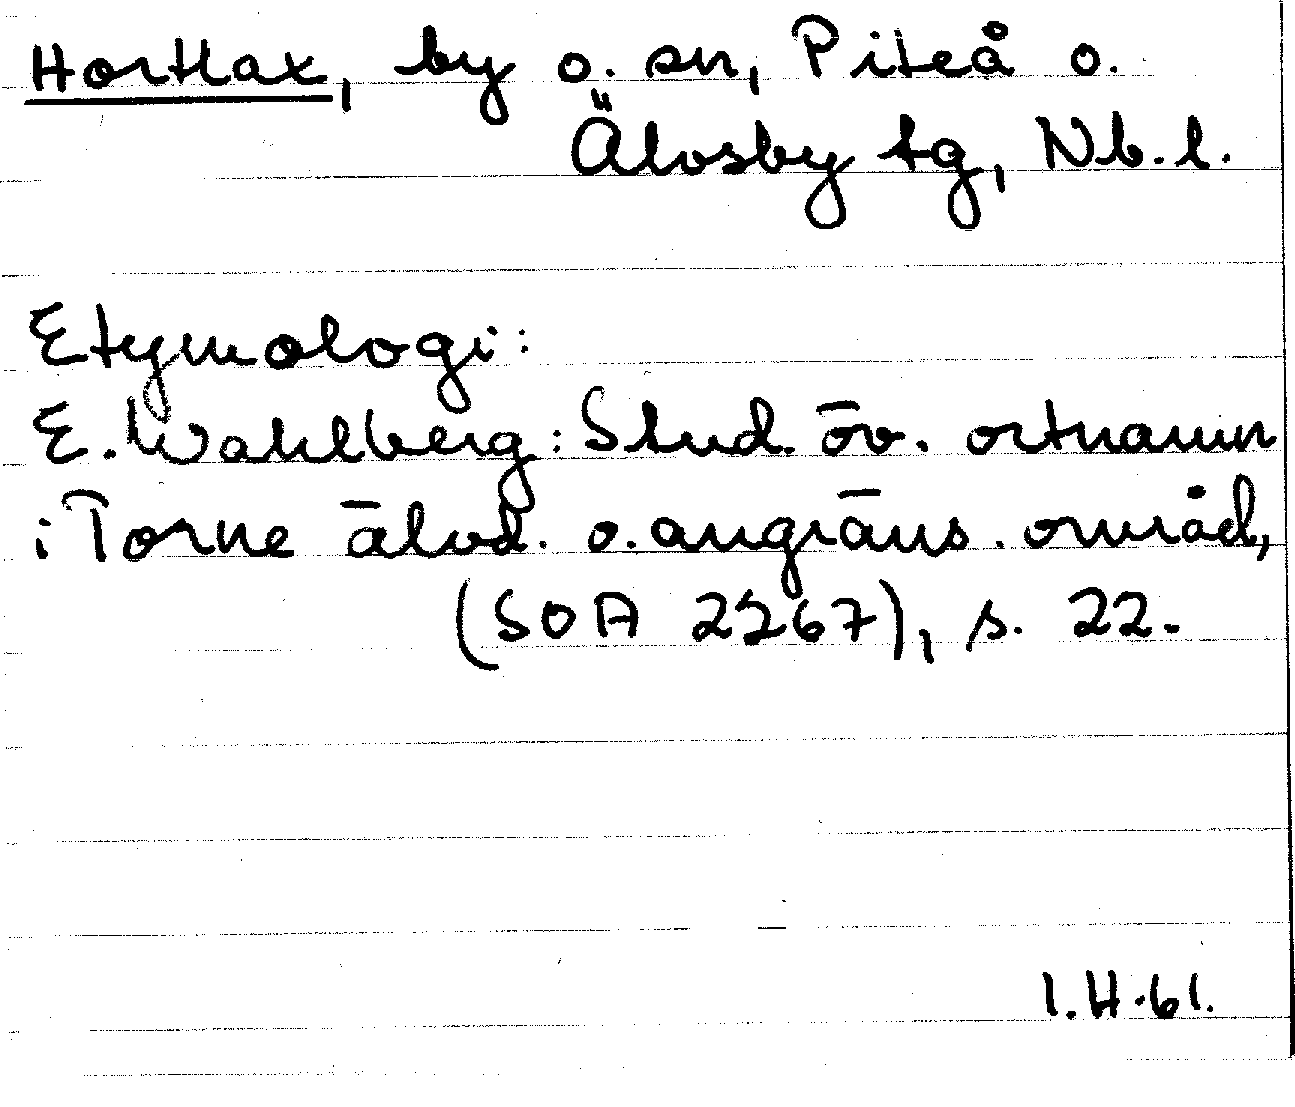 Hortlax, by o. sn, Piteå o.
Älvsby tg, Nb.l.
Etymologi:
E. Wahlberg: Stud. öv. ortnamn
i Torne älvd. o. angräns. områd,
(SOA 2267), s. 22.
I.H.61.